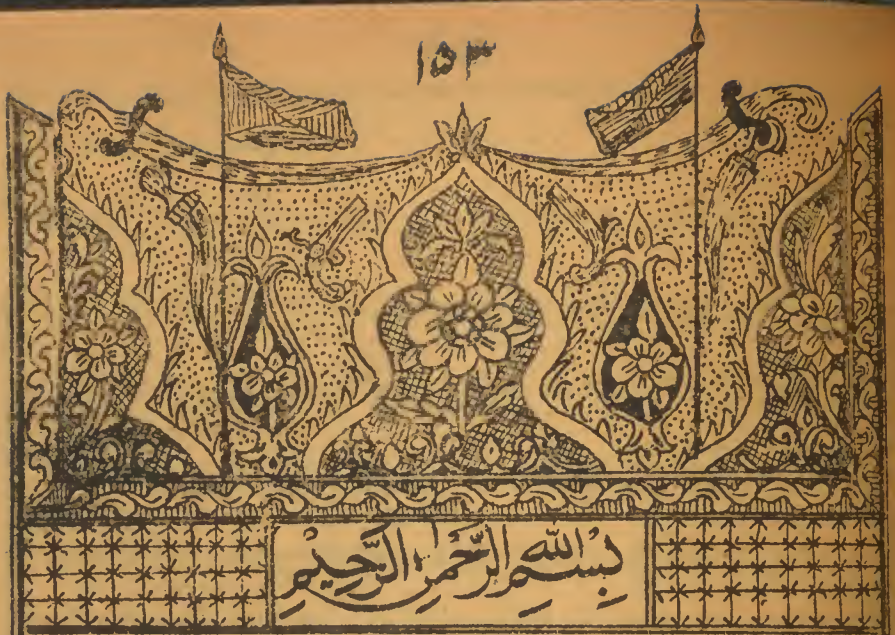 ١٥٣
بِسْمِ اللهِ الرَّحْمٰنِ الرَّحِيْمِ